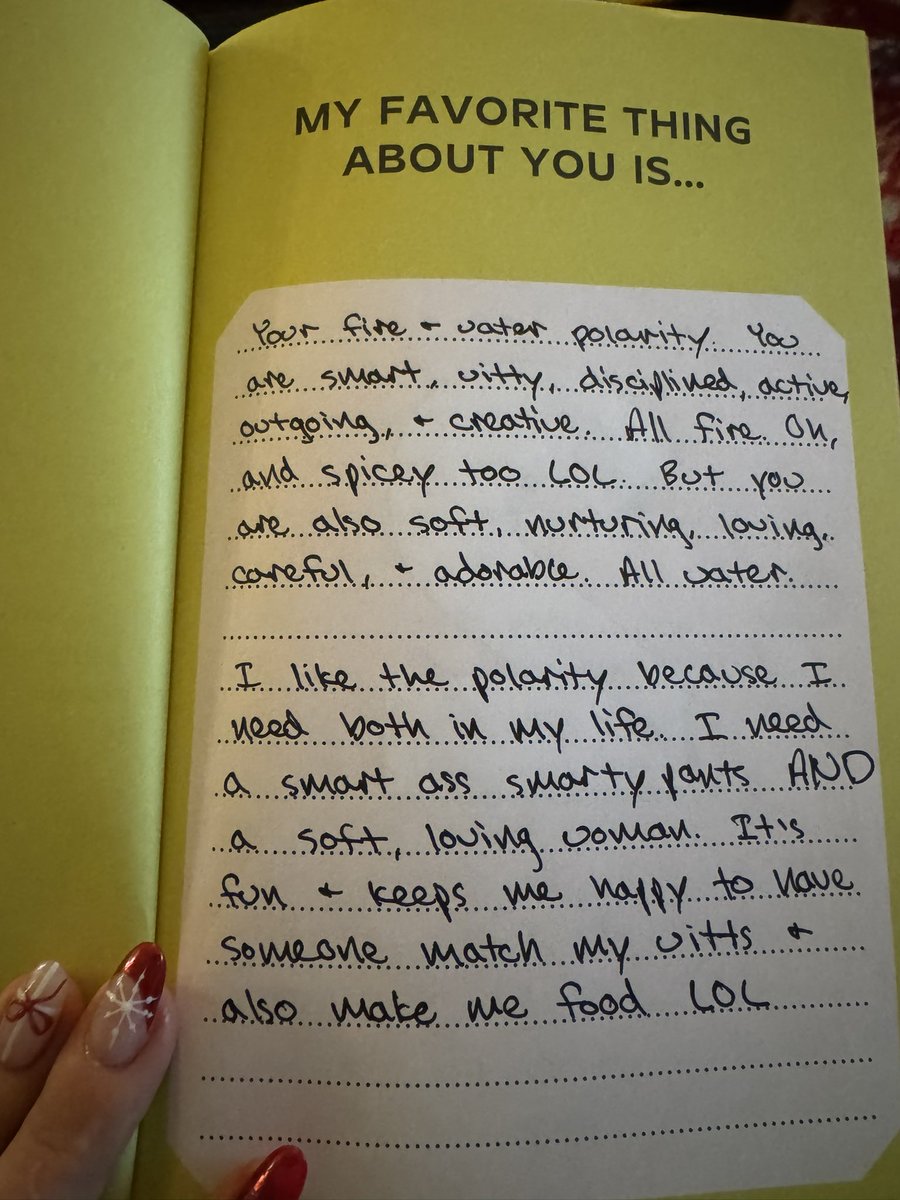 MY FAVORITE THING
ABOUT YOU IS...
Your fire + water polarity. You
are smart, witty, disciplined, active,
outgoing, + creative. All fire. Oh,
and spicey too LOL. But you
are also soft, nurturing, loving,
careful, + adorable. All water.
I like the polarity because I
need both in my life. I need
a smart ass smarty pants AND
a soft, loving woman. It's
fun + keeps me happy to have
someone match my witts +
also make me food LOL